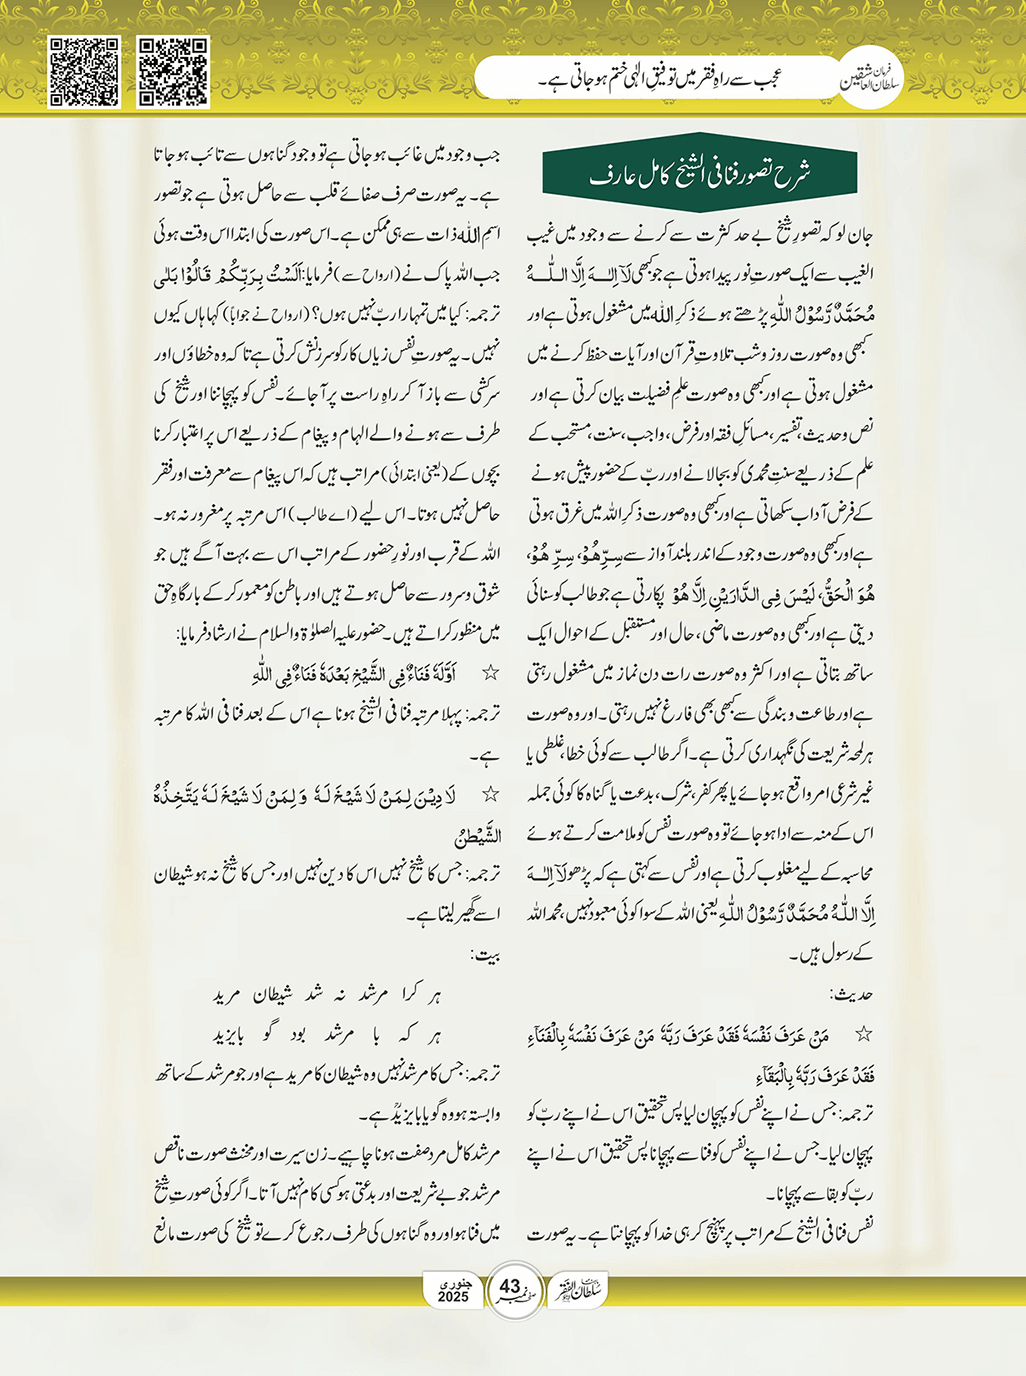 فرمان سلطان العاشقین
عجب سے راہِ فقر میں توفیقِ الٰہی ختم ہو جاتی ہے۔
شرح تصور فنا فی الشیخ کامل عارف
جان لو کہ تصورِ شیخ بے حد کثرت سے کرنے سے وجود میں غیب
الغیب سے ایک صورتِ نور پیدا ہوتی ہے جو کبھی لَآ اِلٰـہَ اِلَّا اللّٰـہُ
مُحَمَّدٌ رَّسُوْلُ اللّٰہِ پڑھتے ہوئے ذکرِ اللہ میں مشغول ہوتی ہے اور
کبھی وہ صورت روز و شب تلاوتِ قرآن اور آیات حفظ کرنے میں
مشغول ہوتی ہے اور کبھی وہ صورت علمِ فضیلت بیان کرتی ہے اور
نص و حدیث، تفسیر، مسائلِ فقہ اور فرض، واجب، سنت، مستحب کے
علم کے ذریعے سنتِ محمدی کو بجا لانے اور ربّ کے حضور پیش ہونے
کے فرض آداب سکھاتی ہے اور کبھی وہ صورت ذکرِ اللہ میں غرق ہوتی
ہے اور کبھی وہ صورت وجود کے اندر بلند آواز سے سِرِّھُوْ، سِرِّ ھُوْ،
ھُوَ الْحَقُّ، لَیْسَ فِی الدَّارَیْنِ اِلَّا ھُوْ پکارتی ہے جو طالب کو سنائی
دیتی ہے اور کبھی وہ صورت ماضی، حال اور مستقبل کے احوال ایک
ساتھ بتاتی ہے اور اکثر وہ صورت رات دن نماز میں مشغول رہتی
ہے اور طاعت و بندگی سے کبھی بھی فارغ نہیں رہتی۔ اور وہ صورت
ہر لمحہ شریعت کی نگہداری کرتی ہے۔ اگر طالب سے کوئی خطا، غلطی یا
غیر شرعی امر واقع ہو جائے یا پھر کفر، شرک، بدعت یا گناہ کا کوئی جملہ
اس کے منہ سے ادا ہو جائے تو وہ صورت نفس کو ملامت کرتے ہوئے
محاسبہ کے لیے مغلوب کرتی ہے اور نفس سے کہتی ہے کہ پڑھو لَآ اِلٰـہَ
اِلَّا اللّٰہُ مُحَمَّدٌ رَّسُوْلُ اللّٰہِ یعنی اللہ کے سوا کوئی معبود نہیں، محمد اللہ
کے رسول ہیں۔
حدیث:
☆ مَنْ عَرَفَ نَفْسَہٗ فَقَدْ عَرَفَ رَبَّہٗ مَنْ عَرَفَ نَفْسَہٗ بِالْفَنَآءِ
فَقَدْ عَرَفَ رَبَّہٗ بِالْبَقَآءِ
ترجمہ: جس نے اپنے نفس کو پہچان لیا پس تحقیق اس نے اپنے ربّ کو
پہچان لیا۔ جس نے اپنے نفس کو فنا سے پہچانا پس تحقیق اس نے اپنے
ربّ کو بقا سے پہچانا۔
نفس فنا فی الشیخ کے مراتب پر پہنچ کر ہی خدا کو پہچانتا ہے۔ یہ صورت
جب وجود میں غائب ہو جاتی ہے تو وجود گناہوں سے تائب ہو جاتا
ہے۔ یہ صورت صرف صفائے قلب سے حاصل ہوتی ہے جو تصور
اسمِ اللہ ذات سے ہی ممکن ہے۔ اس صورت کی ابتدا اس وقت ہوئی
جب اللہ پاک نے (ارواح سے) فرمایا: اَلَسْتُ بِرَبِّکُمْ قَالُوْا بَلٰی
ترجمہ: کیا میں تمہارا ربّ نہیں ہوں؟ (ارواح نے جواباً) کہا ہاں کیوں
نہیں۔ یہ صورتِ نفس زیاں کار کو سرزنش کرتی ہے تاکہ وہ خطاؤں اور
سرکشی سے باز آ کر راہِ راست پر آ جائے۔ نفس کو پہچاننا اور شیخ کی
طرف سے ہونے والے الہام و پیغام کے ذریعے اس پر اعتبار کرنا
بچوں کے (یعنی ابتدائی) مراتب ہیں کہ اس پیغام سے معرفت اور فقر
حاصل نہیں ہوتا۔ اس لیے (اے طالب) اس مرتبہ پر مغرور نہ ہو۔
اللہ کے قرب اور نورِ حضور کے مراتب اس سے بہت آگے ہیں جو
شوق و سرور سے حاصل ہوتے ہیں اور باطن کو معمور کر کے بارگاہِ حق
میں منظور کراتے ہیں۔ حضور علیہ الصلوٰۃ والسلام نے ارشاد فرمایا:
☆ اَوَّلَہٗ فَنَاءٌ فِی الشَّیْخِ بَعْدَہٗ فَنَاءٌ فِی اللّٰہِ
ترجمہ: پہلا مرتبہ فنا فی الشیخ ہونا ہے اس کے بعد فنا فی اللہ کا مرتبہ
ہے۔
☆ لَا دِیْنَ لِمَنْ لَا شَیْخَ لَہٗ وَلِمَنْ لَا شَیْخَ لَہٗ یَتَّخِذُہُ
الشَّیْطٰنُ
ترجمہ: جس کا شیخ نہیں اس کا دین نہیں اور جس کا شیخ نہ ہو شیطان
اسے گھیر لیتا ہے۔
بیت:
ہر کرا مرشد نہ شد شیطان مرید
ہر کہ با مرشد بود گو بایزید
ترجمہ: جس کا مرشد نہیں وہ شیطان کا مرید ہے اور جو مرشد کے ساتھ
وابستہ ہو وہ گویا بایزیدؒ ہے۔
مرشد کامل مرد صفت ہونا چاہیے۔ زن سیرت اور مخنث صورت ناقص
مرشد جو بے شریعت اور بدعتی ہو کسی کام نہیں آتا۔ اگر کوئی صورتِ شیخ
میں فنا ہو اور وہ گناہوں کی طرف رجوع کرے تو شیخ کی صورت مانع
سلطان الفقر
صفحہ نمبر 43
جنوری 2025